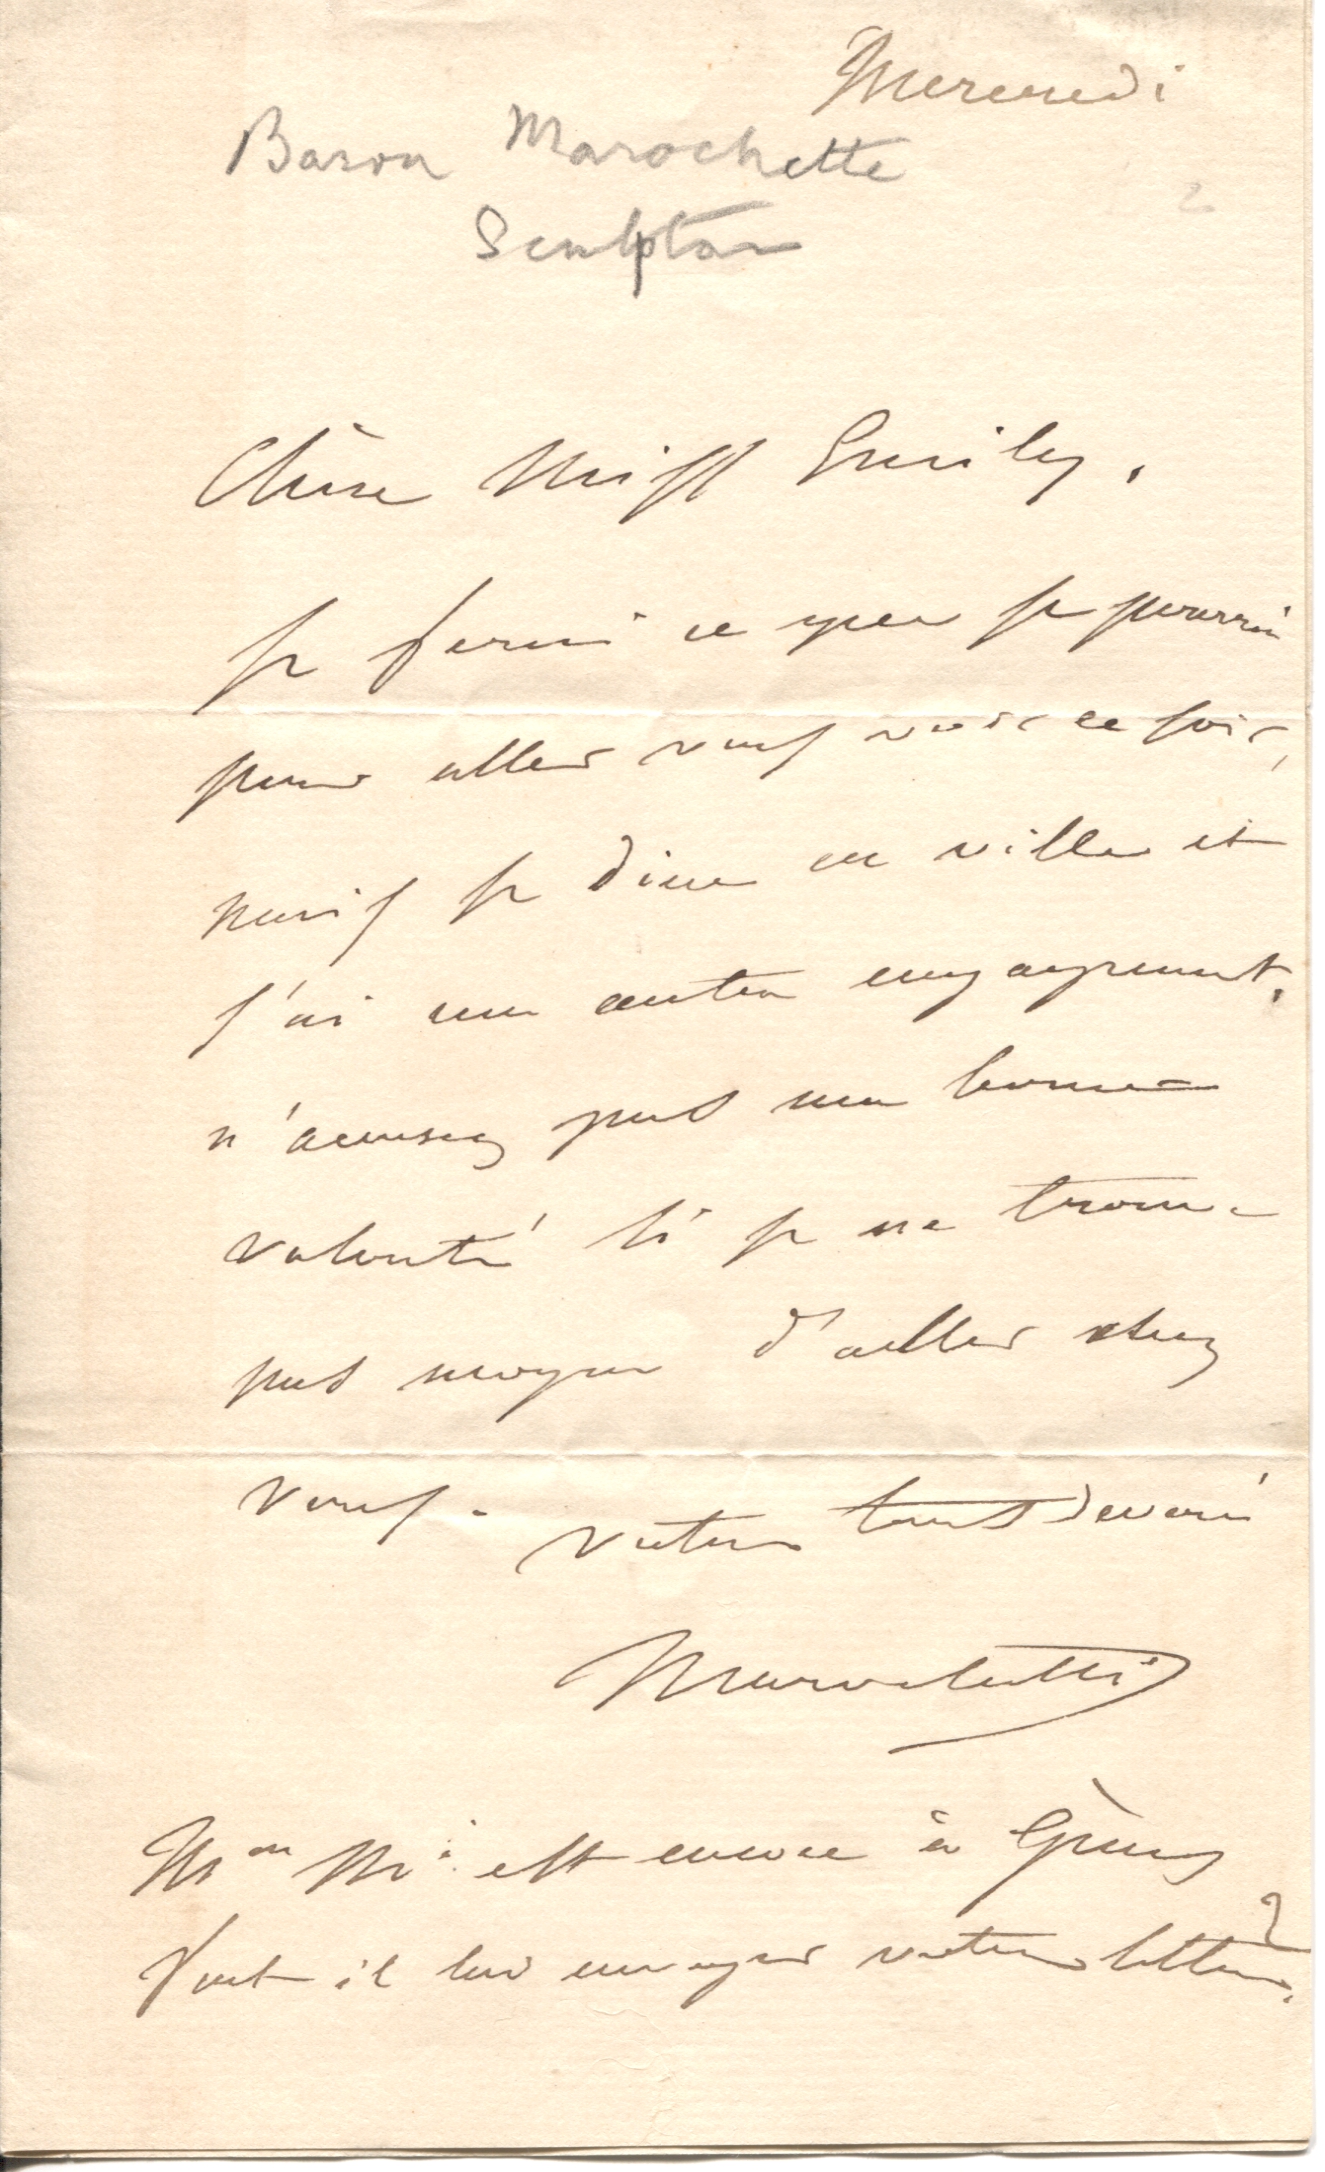 Mercredi
Baron Marochette
Sculptor
2
Chère Miss Emily,
je ferai ce que je pourrai
pour aller vous voir ce soir,
mais je dine en ville et
j'ai un autre engagement.
n'accusez pas ma bonne
volonté si je ne trouve
pas moyen d'aller chez
vous. votre tout dévoué
Marochetti
M^me M^i est encore à
Faut il lui envoyer votre lettre?